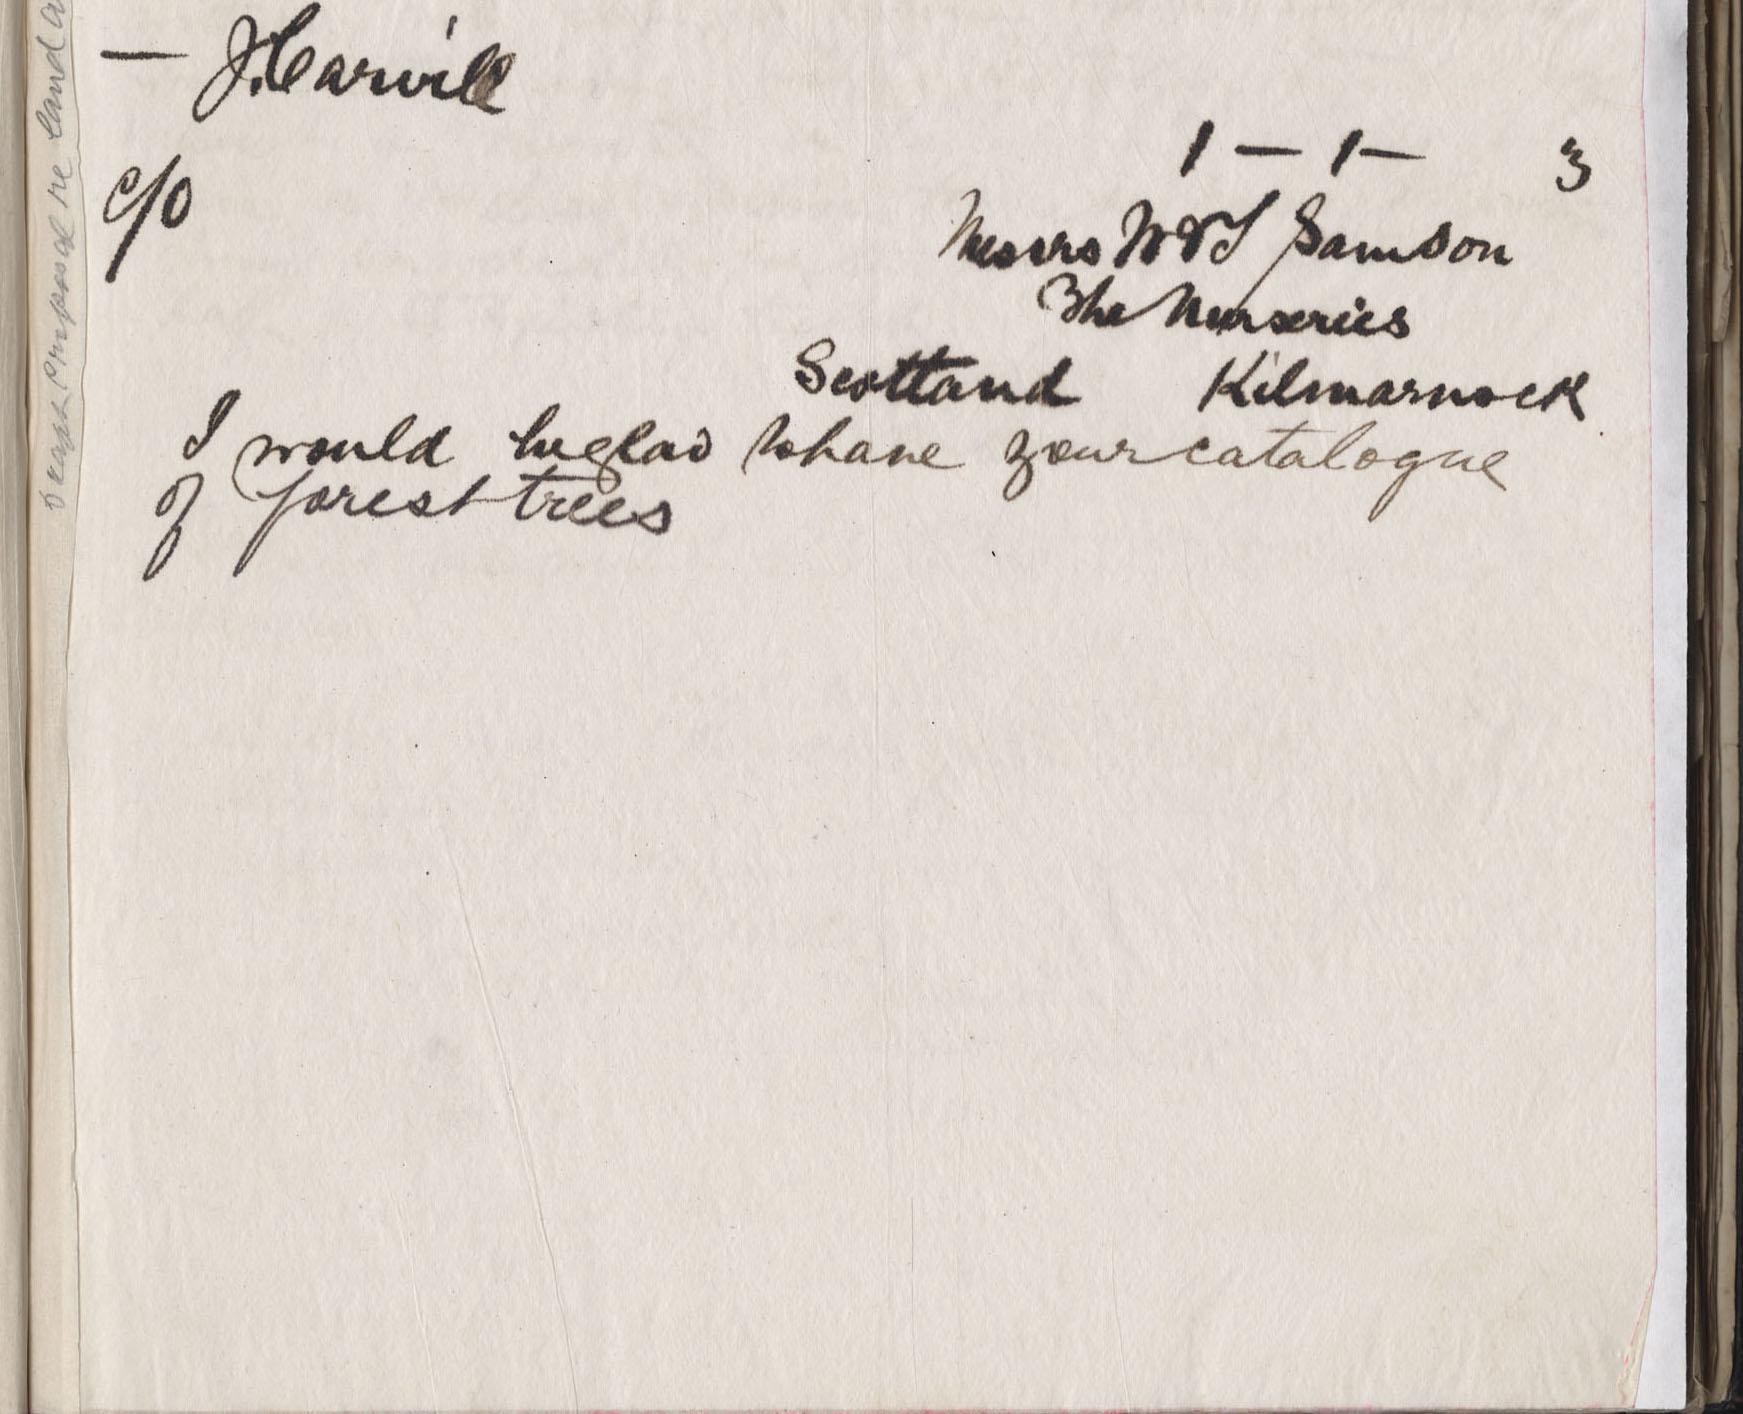 — J. Carvill
1 — 1 — 3
c/o
Messrs W & T Samson
The Nurseries
Scotland Kilmarnock
I would be glad to have your catalogue
of forest trees
re land